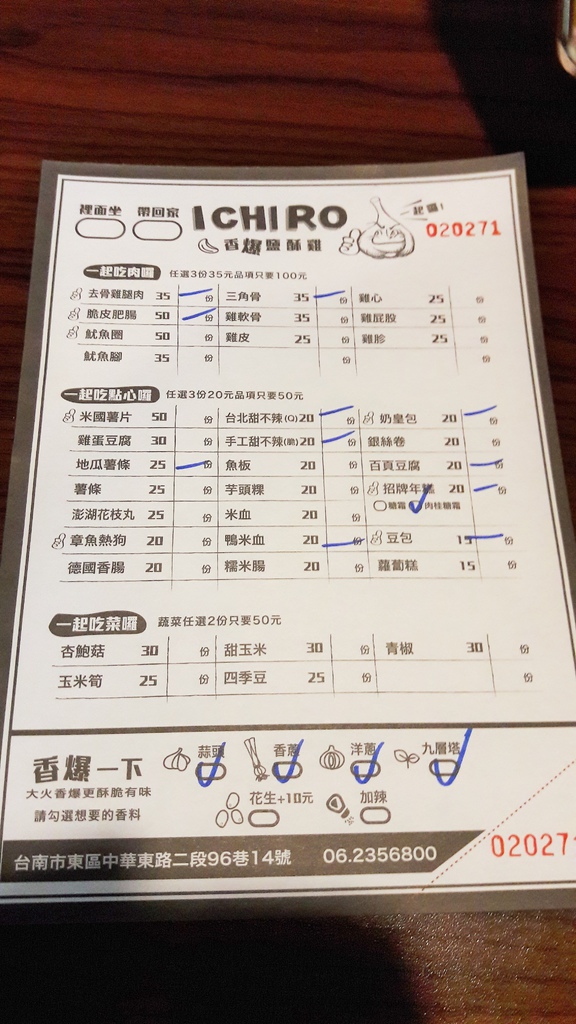 裡面坐 帶回家 ICHIRO 一起嗑!
香爆鹽酥雞 020271
一起吃肉囉 任選3份35元品項只要100元
去骨雞腿肉 35 一 份 三角骨 35 一 份 雞心 25 份
脆皮肥腸 50 一 份 雞軟骨 35 份 雞屁股 25 份
魷魚圈 50 份 雞皮 25 份 雞胗 25 份
魷魚腳 35 份 份
一起吃點心囉 任選3份20元品項只要50元
米國薯片 50 份 台北甜不辣(Q) 20 一 份 奶皇包 20 一 份
雞蛋豆腐 30 份 手工甜不辣(脆) 20 一 份 銀絲卷 20 份
地瓜薯條 25 一 份 魚板 20 份 百頁豆腐 20 一 份
薯條 25 份 芋頭粿 20 份 招牌年糕 20 一 份
糖霜 肉桂糖霜
澎湖花枝丸 25 份 米血 20 份
章魚熱狗 20 份 鴨米血 20 一 份 豆包 15 一 份
德國香腸 20 份 糯米腸 20 份 蘿蔔糕 15 份
一起吃菜囉 蔬菜任選2份只要50元
杏鮑菇 30 份 甜玉米 30 份 青椒 30 份
玉米筍 25 份 四季豆 25 份 份
香爆一下 蒜頭 香蔥 洋蔥 九層塔
大火香爆更酥脆有味
請勾選想要的香料 花生+10元 加辣
台南市東區中華東路二段96巷14號 06.2356800 020271